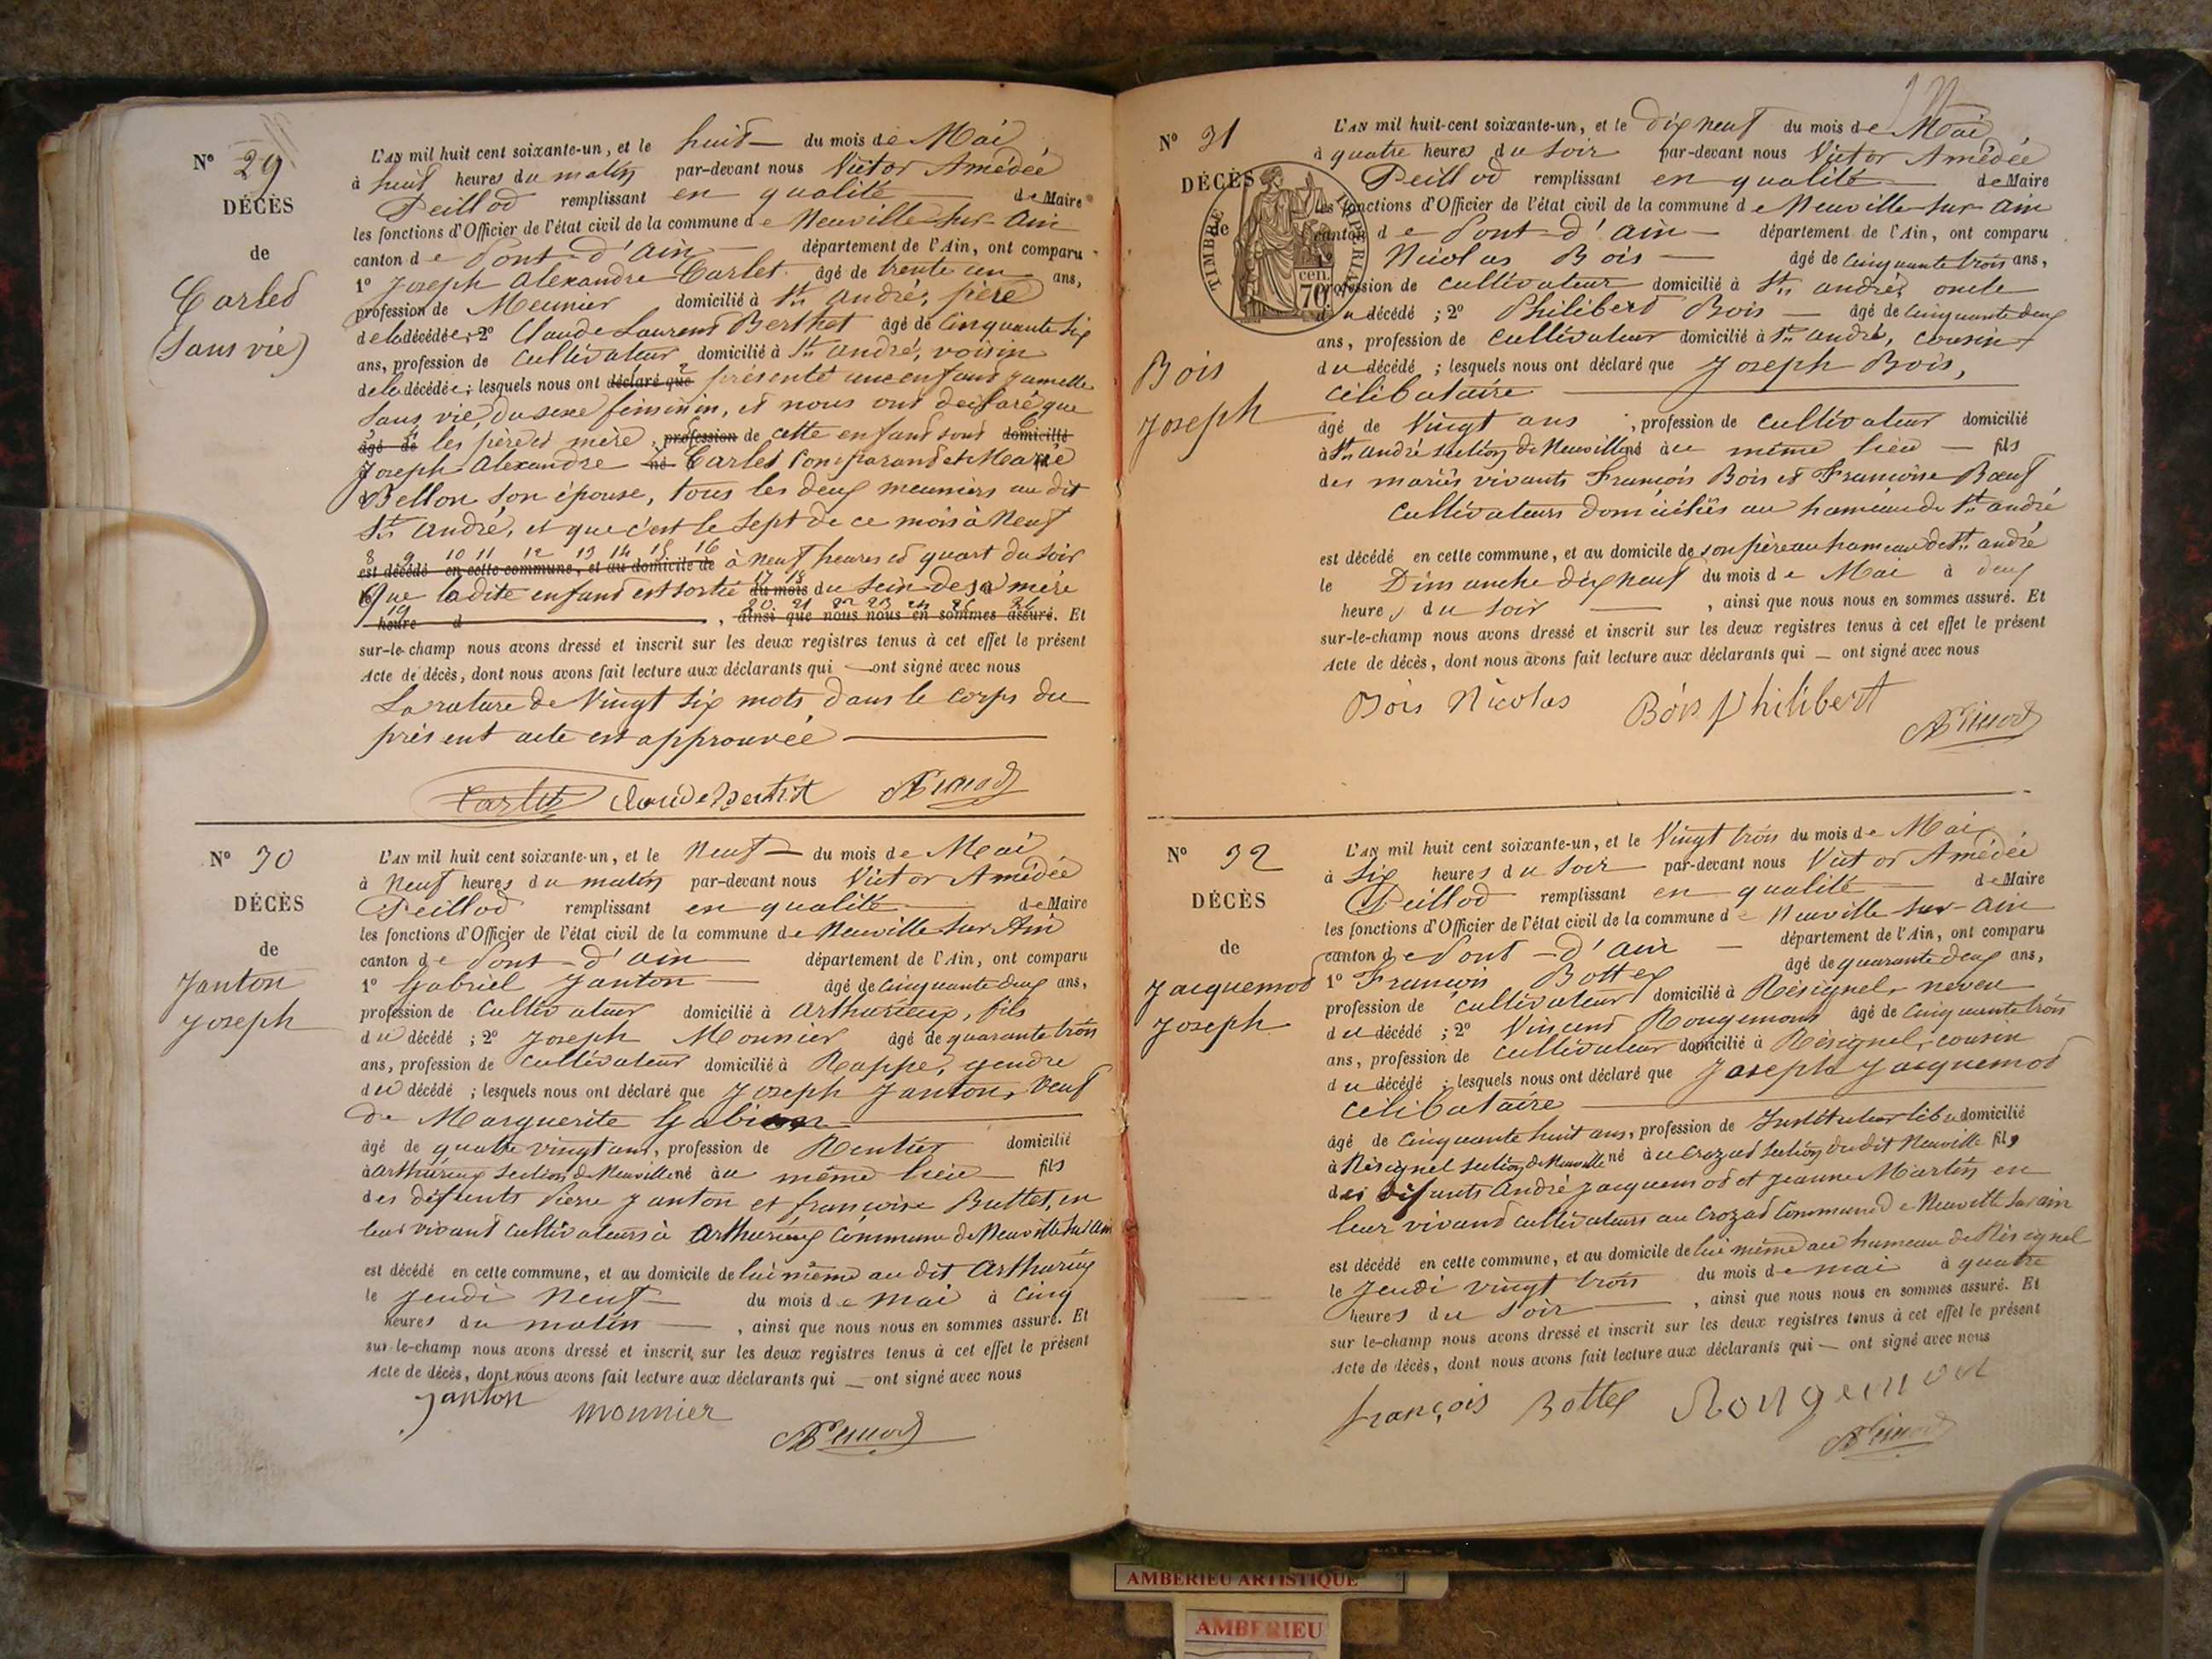 N° 29
DÉCÈS
de
Carlet
(Sans vie)
L'AN mil huit cent soixante-un, et le huit du mois de Mai
à huit heures du matin par-devant nous Victor Amédée
Peillod remplissant en qualité de Maire
les fonctions d'Officier de l'état civil de la commune de Neuville sur Ain
canton de Pont-d'ain département de l'Ain, ont comparu
1° Joseph Alexandre Carlet âgé de trente un ans,
profession de Meunier domicilié à St. andré, père
de la décédée; 2° Claude Laurent Berthet âgé de Cinquante six
ans, profession de Cultivateur domicilié à St. andré, voisin
de la décédée; lesquels nous ont déclaré que présenté une enfant jumelle
Sans vie, du sexe féminin, et nous ont déclaré que
âgé de les père et mère, profession de cette enfant sont domicilié
Joseph-Alexandre né Carlet Comparant et Marie
Bellon son épouse, tous les deux meuniers au dit
St. André, et que c'est le Sept de ce mois à Neuf
8 9 10 11 12 13 14 15 16
est décédé en cette commune, et au domicile de à neuf heures et quart du soir
Que ladite enfant est sortie du mois du sein de sa mère
heure d , ainsi que nous nous en sommes assuré. Et
sur-le-champ nous avons dressé et inscrit sur les deux registres tenus à cet effet le présent
Acte de décès, dont nous avons fait lecture aux déclarants qui — ont signé avec nous
La rature de Vingt six mots dans le corps du
présent acte est approuvée
Carlet Claude Berthet
N° 30
DÉCÈS
de
Janton
Joseph
L'AN mil huit cent soixante-un, et le Neuf du mois de Mai
à Neuf heures du matin par-devant nous Victor Amédée
Peillod remplissant en qualité de Maire
les fonctions d'Officier de l'état civil de la commune de Neuville sur Ain
canton de Pont-d'ain département de l'Ain, ont comparu
1° Gabriel Janton âgé de Cinquante deux ans,
profession de Cultivateur domicilié à Arthurieux, fils
du décédé; 2° Joseph Mounier âgé de quarante trois
ans, profession de Cultivateur domicilié à Rappe, gendre
du décédé; lesquels nous ont déclaré que Joseph Janton, Veuf
de Marguerite
âgé de quatre vingt ans, profession de Rentier domicilié
à arthurieux section de Neuville né au même lieu fils
des défunts Pierre Janton et françoise Buttet, en
leur vivant cultivateurs à Arthurieux Commune de Neuville Sur Ain
est décédé en cette commune, et au domicile de lui même au dit Arthurieux
le jeudi Neuf du mois de mai à Cinq
heures du matin , ainsi que nous nous en sommes assuré. Et
sur-le-champ nous avons dressé et inscrit sur les deux registres tenus à cet effet le présent
Acte de décès, dont nous avons fait lecture aux déclarants qui — ont signé avec nous
Janton monnier
N° 31
DÉCÈS
de
TIMBRE IMPERIAL
70 cen.
Bois
Joseph
L'AN mil huit-cent soixante-un, et le dix neuf du mois de Mai
à quatre heures du Soir par-devant nous Victor Amédée
Peillod remplissant en qualité de Maire
les fonctions d'Officier de l'état civil de la commune de Neuville sur ain
canton de Pont-d'ain département de l'Ain, ont comparu
Nicolas Bois âgé de Cinquante trois ans,
profession de Cultivateur domicilié à St. andré, oncle
du décédé; 2° Philibert Bois âgé de Cinquante deux
ans, profession de Cultivateur domicilié à St. andré, cousin
du décédé; lesquels nous ont déclaré que Joseph Bois,
Célibataire
âgé de Vingt ans, profession de Cultivateur domicilié
à St. andré section de Neuville né au même lieu fils
des mariés vivants François Bois et Françoise Bœuf
Cultivateurs domiciliés au hameau de St. andré
est décédé en cette commune, et au domicile de son père au hameau de St. andré
le Dimanche dix neuf du mois de Mai à deux
heures du soir , ainsi que nous nous en sommes assuré. Et
sur-le-champ nous avons dressé et inscrit sur les deux registres tenus à cet effet le présent
Acte de décès, dont nous avons fait lecture aux déclarants qui — ont signé avec nous
Bois Nicolas Bois philibert
N° 32
DÉCÈS
de
Jacquemod
Joseph
L'AN mil huit cent soixante-un, et le Vingt trois du mois de Mai
à Six heures du Soir par-devant nous Victor Amédée
Peillod remplissant en qualité de Maire
les fonctions d'Officier de l'état civil de la commune de Neuville sur-ain
canton de Pont-d'ain département de l'Ain, ont comparu
1° François Bottex âgé de quarante deux ans,
profession de Cultivateur domicilié à Résignel, neveu
du décédé; 2° Vincent Rougemont âgé de Cinquante trois
ans, profession de Cultivateur domicilié à Résignel, cousin
du décédé; lesquels nous ont déclaré que Joseph Jacquemod
Célibataire
âgé de Cinquante huit ans, profession de Instituteur libre domicilié
à Résignel section de Neuville né au Crozat section du dit Neuville fils
des défunts André Jacquemod et Jeanne Martin en
leur vivant cultivateurs au Crozat Commune de Neuville sur ain
est décédé en cette commune, et au domicile de lui même au hameau de Résignel
le Jeudi vingt trois du mois de mai à quatre
heures du soir , ainsi que nous nous en sommes assuré. Et
sur le-champ nous avons dressé et inscrit sur les deux registres tenus à cet effet le présent
Acte de décès, dont nous avons fait lecture aux déclarants qui — ont signé avec nous
françois Bottex Rougemont
AMBERIEU ARTISTIQUE
AMBERIEU